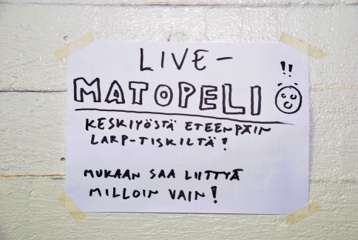 LIVE-
MATOPELI !!
KESKIYÖSTÄ ETEENPÄIN
LARP-TISKILTÄ!
MUKAAN SAA LIITTYÄ
MILLOIN VAIN!